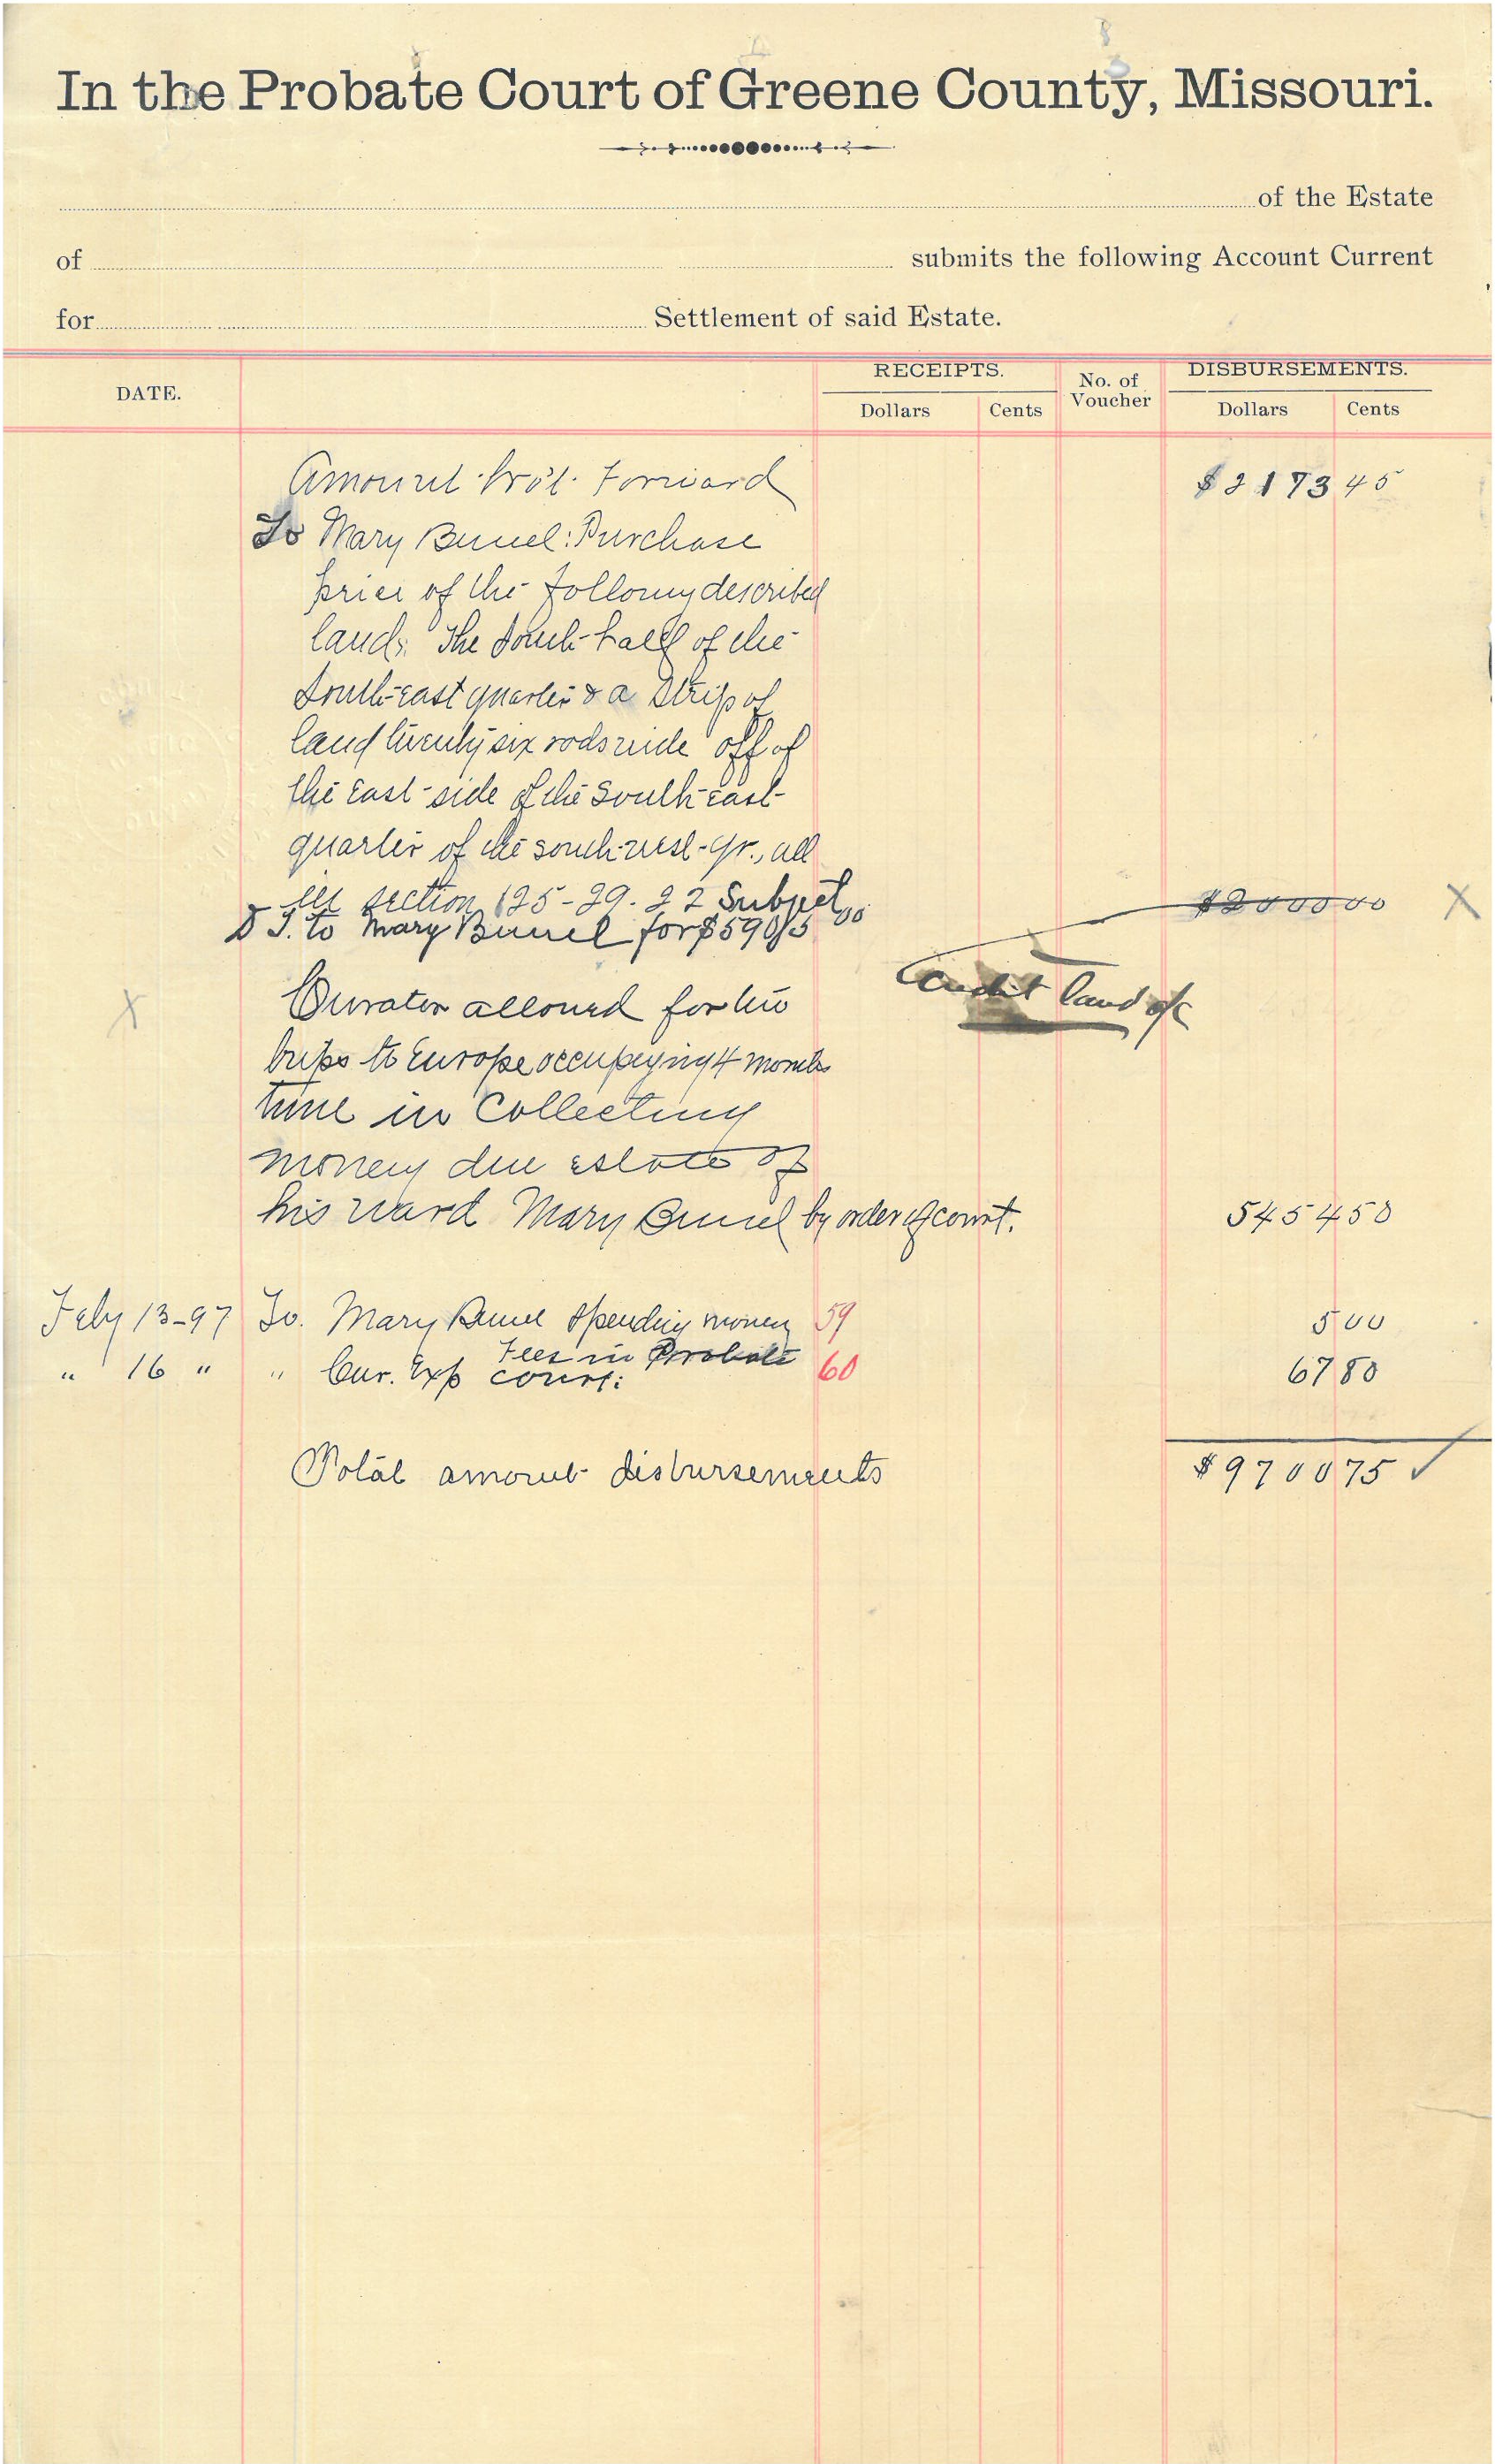 In the Probate Court of Greene County, Missouri.
of the Estate
of submits the following Account Current
for Settlement of said Estate.
DATE. RECEIPTS. No. of Voucher DISBURSEMENTS.
Dollars Cents Dollars Cents
Amount Bro't. Forward $2173 45
To Mary Bunel: Purchase
price of the following described
land: The South half of the
South-east quarter & a Strip of
land twenty six rods wide off of
the East-side of the South-east-
quarter of the south-west-qr., all
in section 125-29-22 Subject $2000 00 X
D T. to Mary Bunel for $5905 00
Credit land a/c
X Curator allowed for two
trips to Europe occupeying 4 months
time in Collecting
money due estate of
his ward Mary Bunel by order of court. 5454 50
Feby 13-97 To. Mary Bunel Spending money 59 5 00
" 16 " " Cur. Exp Fees in Probate court: 60 67 80
Total amount disbursements $9700 75 ✓